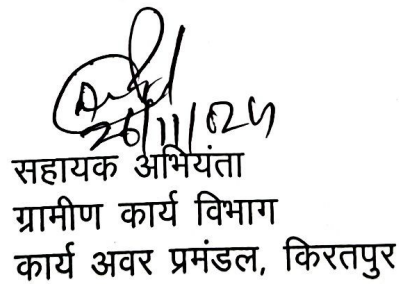 26/11/024
सहायक अभियंता
ग्रामीण कार्य विभाग
कार्य अवर प्रमंडल, किरतपुर